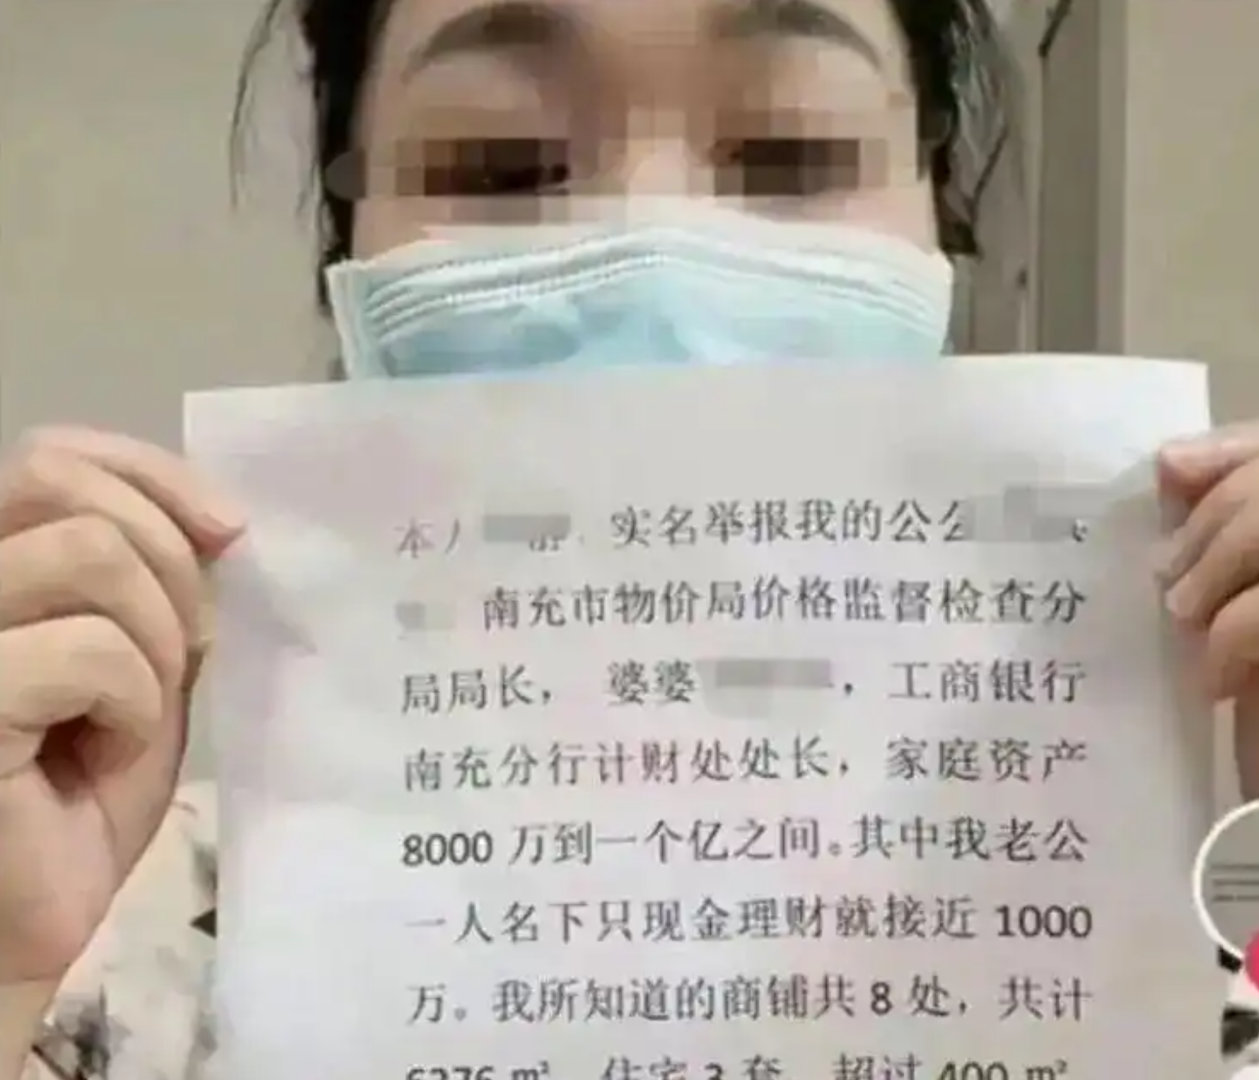 本人 实名举报我的公公
南充市物价局价格监督检查分
局局长， 婆婆 ，工商银行
南充分行计财处处长，家庭资产
8000 万到一个亿之间。其中我老公
一人名下只现金理财就接近 1000
万。我所知道的商铺共 8 处，共计
6276 m²，住宅 3 套，超过 400 m²，